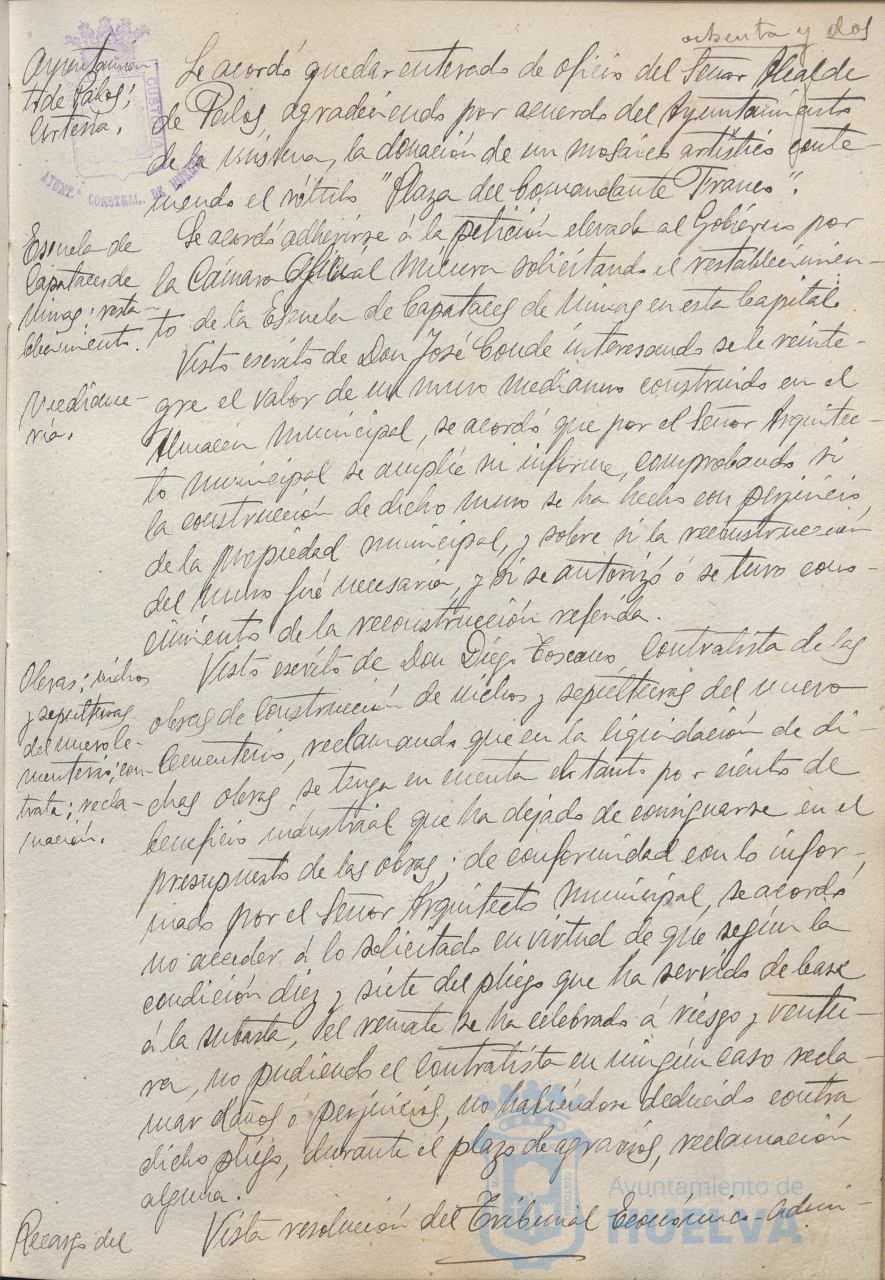 ochenta y dos
Ayuntamien-
to de Palos;
Cortesía.
Se acordó quedar enterado de oficio del Señor Alcalde
de Palos, agradeciendo por acuerdo del Ayuntamiento
de la misma, la donación de un mosaico artístico conte-
niendo el rótulo "Plaza del Comandante Franco".
Escuela de
Capataces de
Minas; resta-
blecimiento.
Se acordó adherirse á la petición elevada al Gobierno por
la Cámara Oficial Minera solicitando el restablecimien-
to de la Escuela de Capataces de Minas en esta Capital.
Mediane-
ría.
Visto escrito de Don José Conde interesando se le reinte-
gre el valor de un muro medianero construido en el
Almacén Municipal, se acordó que por el Señor Arquitec-
to Municipal se amplíe su informe, comprobando si
la construcción de dicho muro se ha hecho con perjuicio
de la propiedad municipal, y sobre si la reconstrucción
del muro fué necesaria, y si se autorizó ó se tuvo cono-
cimiento de la reconstrucción referida.
Obras; nichos
y sepulturas
del nuevo Ce-
menterio; con-
trata; recla-
mación.
Visto escrito de Don Diego Toscano, Contratista de las
obras de construcción de nichos y sepulturas del nuevo
Cementerio, reclamando que en la liquidación de di-
chas obras se tenga en cuenta el tanto por ciento de
beneficio industrial que ha dejado de consignarse en el
presupuesto de las obras; de conformidad con lo infor-
mado por el Señor Arquitecto Municipal, se acordó
no acceder á lo solicitado en virtud de que según la
condición diez y siete del pliego que ha servido de base
á la subasta, el remate se ha celebrado á riesgo y ventu-
ra, no pudiendo el contratista en ningún caso recla-
mar daños ó perjuicios, no habiéndose deducido contra
dicho pliego, durante el plazo de agravios, reclamación
alguna.
Recargo del
Vista resolución del Tribunal Económico-Admi-
Ayuntamiento de
HUELVA